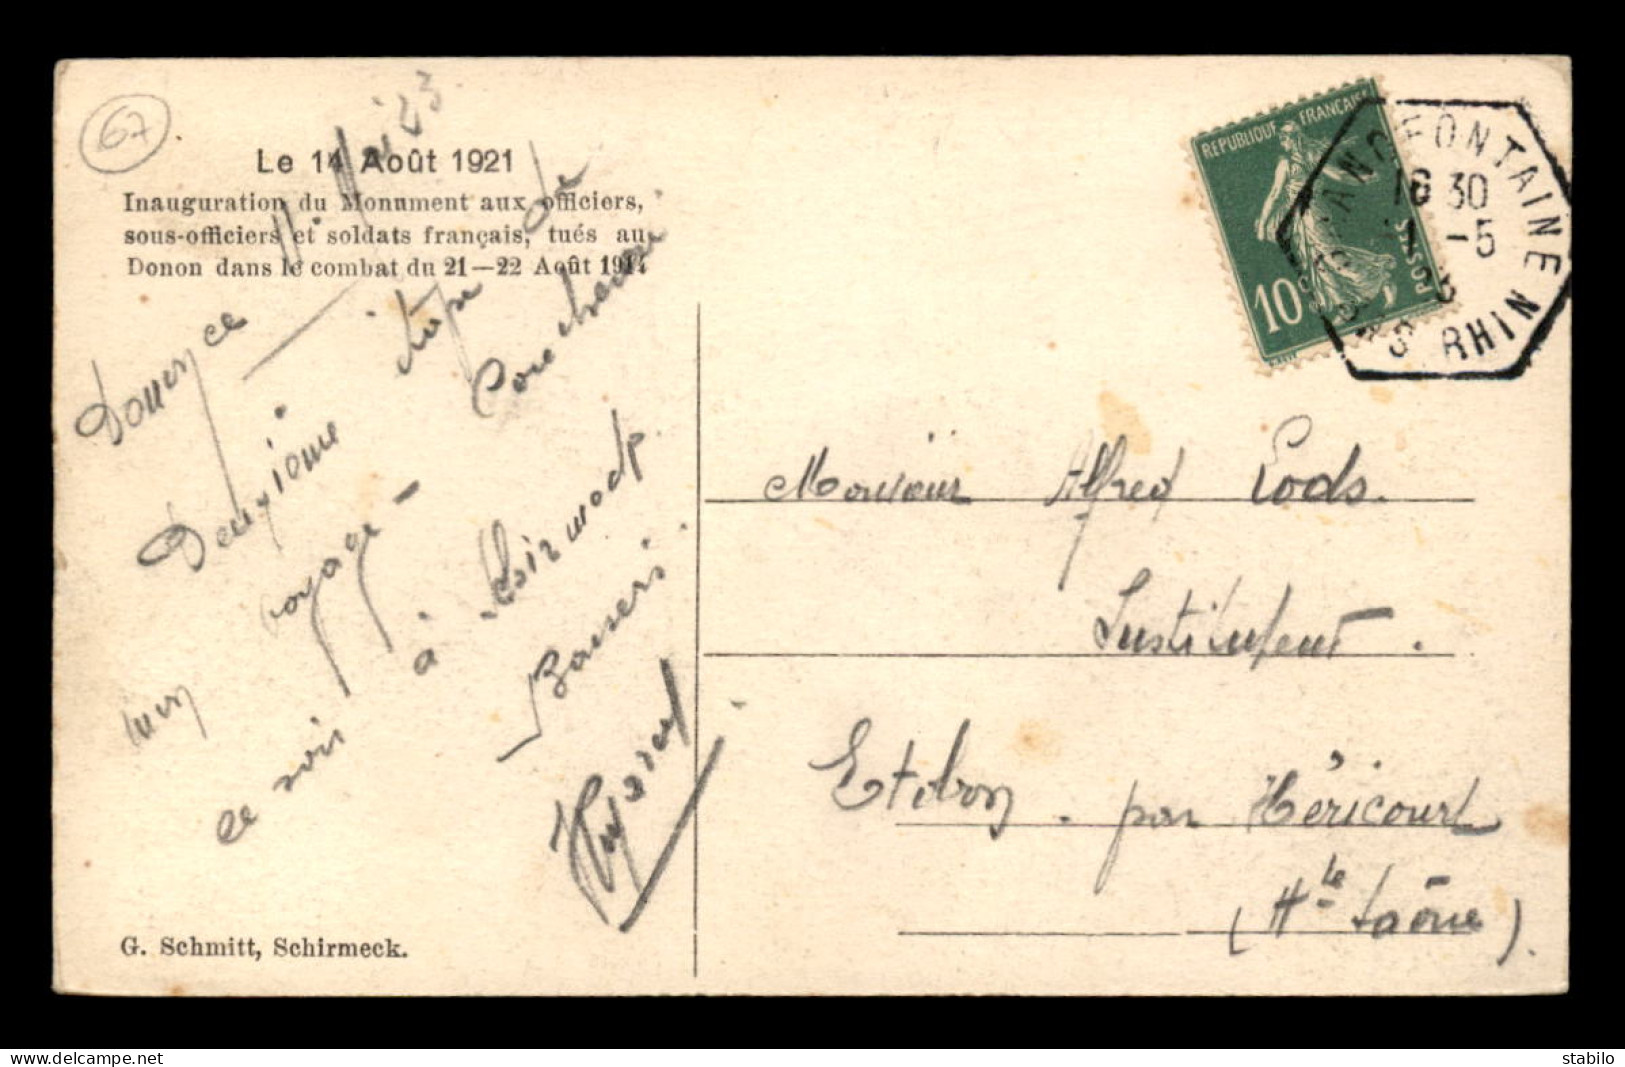 67
Le 14 Août 1921
Inauguration du Monument aux officiers,
sous-officiers et soldats français, tués au
Donon dans le combat du 21—22 Août 1914
Donon ce 11 Mai 23
Deuxième étape de
mon voyage — Coucherai
ce soir à
Baisers
G. Schmitt, Schirmeck.
REPUBLIQUE FRANÇAISE
POSTES
10c
GRANDFONTAINE
16 30
-5
BAS RHIN
Monsieur Alfred Lods.
Instituteur.
Etobon. par Héricourt
(Hte Saône).
delcampe.net
stabilo